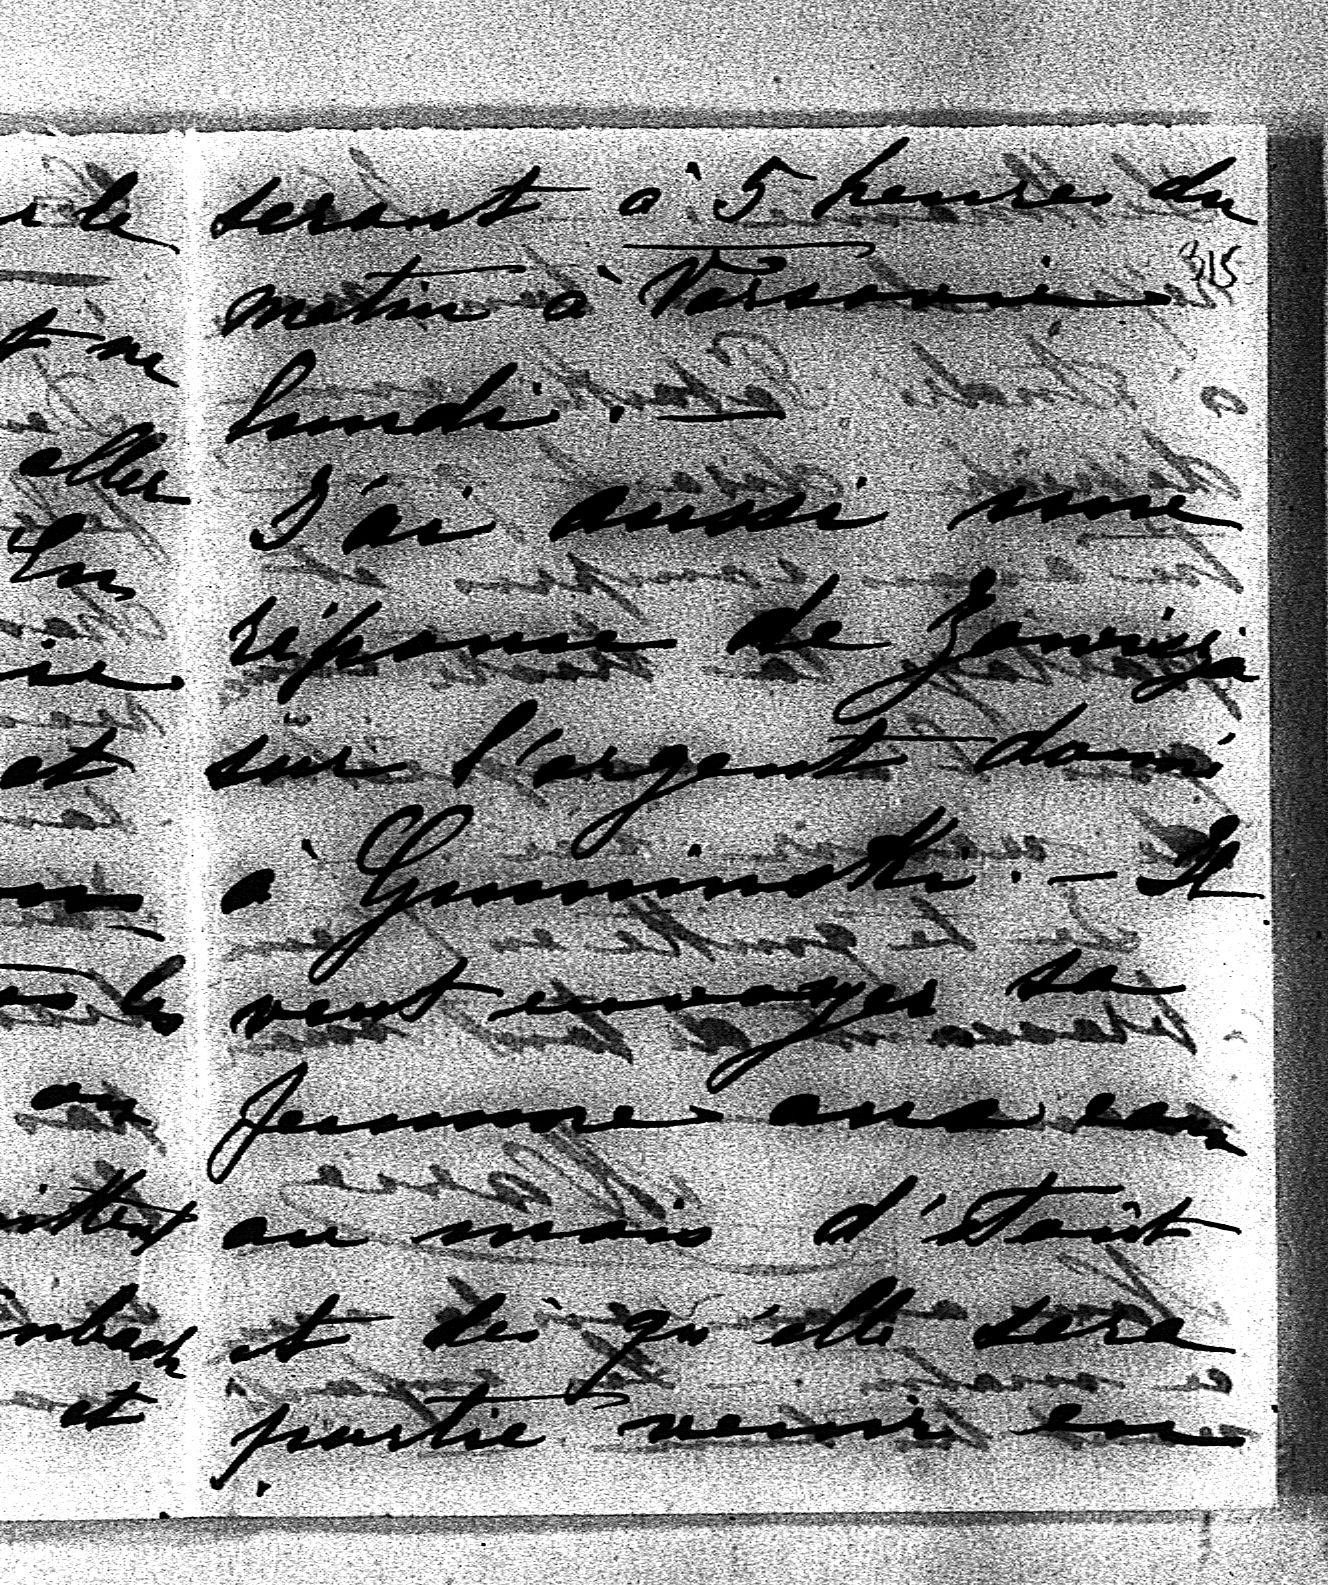 r le
t ne
aller
En
ise
et
les
on
inbach
et
seront à 5 heures du
315
matin à Varsovie
lundi. —
J'ai aussi une
réponse de
sur l'argent donné
à Guminski. — Il
veut envoyer sa
femme aux eaux
au mois d'Août
et dès qu'elle sera
partie venir en